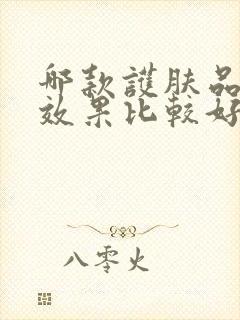 哪款護肤品
效果比較好
八零火